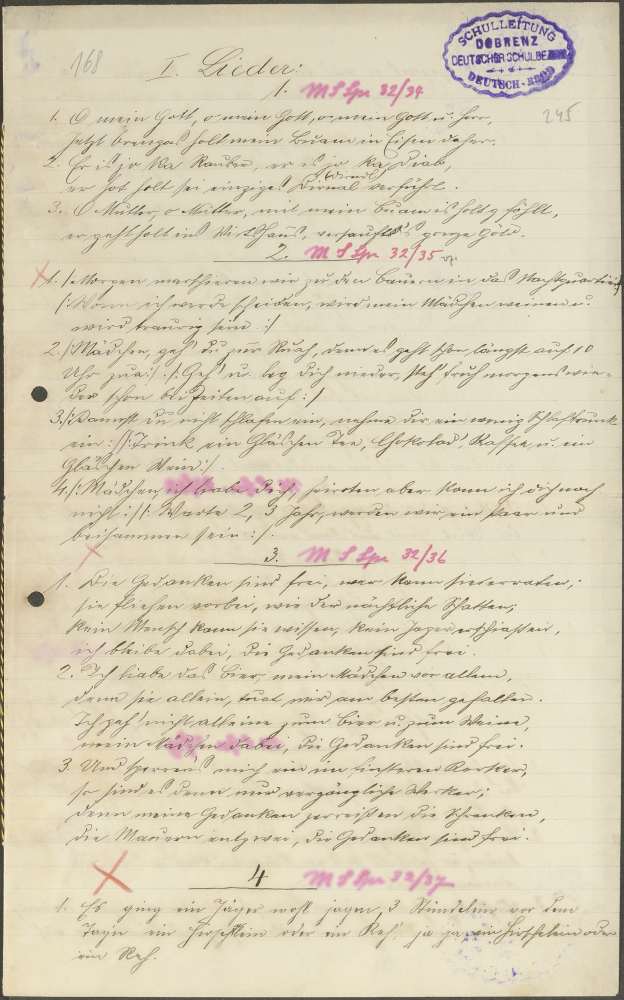 168
SCHULLEITUNG
DOBRENZ
DEUTSCHER SCHULBE
DEUTSCH-BROD
I. Lieder:
1. M S Spr 32/34
245
1. O mein Gott, o mein Gott, o mein Gott u. Herr,
jetzt bringas holt mein Buam in Eisen daher.
2. Er is jo ka Rauber, er is jo ka Diab,
er hot holt sei einziges Dirnal verführt.
3. O Mutter, o Mutter, mit mein Buam is holt g'föhlt,
er geht holt ins Wirtshaus, versauft's gonze Göld.
2. M S Spr 32/35
1. /: Morgen marschieren wir zu den Bauern in das Nachtquartier :/
/: Wenn ich werde scheiden, wird mein Mädchen weinen u.
wird traurig sein :/
2. /: Mädchen, geh' du zur Ruah, denn es geht schon längst auf 10
Uhr zua :/ /: Geh' u. leg dich nieder, steh' früh morgens wie-
der schon bei Zeiten auf :/
3. /: Kannst du nicht schlafen ein, nehme dir ein wenig Schlaftrunk
ein :/ /: Trink ein Gläschen Tee, Chokolad', Kaffee, u. ein
Gläschen Wein :/
4. /: Mädchen, ich liebe dich, heiraten aber kann ich dich noch
nicht :/ /: Warte 2, 3 Jahr, werden wir ein Paar und
beisammen sein :/.
3. M S Spr 32/36
1. Die Gedanken sind frei, wer kann sie erraten,
sie fliehen vorbei, wie der nächtliche Schatten;
kein Mensch kann sie wissen, kein Jager erschiaßen,
ich bleibe dabei, die Gedanken sind frei.
2. Ich liebe das Bier, mein Mädchen vor allem,
denn sie allein, tuat mir am besten gefallen.
Ich geh' nicht alleine zum Bier u. zum Weine,
mein Mädchen dabei, die Gedanken sind frei.
3. Und sperrens mich ein im finsteren Kerker,
so sind es denn nur vergängliche Werker;
denn meine Gedanken zerreißen die Schranken,
die Mauern entzwei, die Gedanken sind frei.
4 M S Spr 32/37
1. Es ging ein Jäger wohl jagen, 3 Stündelein vor dem
Tagen ein Hirschlein oder ein Reh' ja ja ein Hirschelein oder
ein Reh.